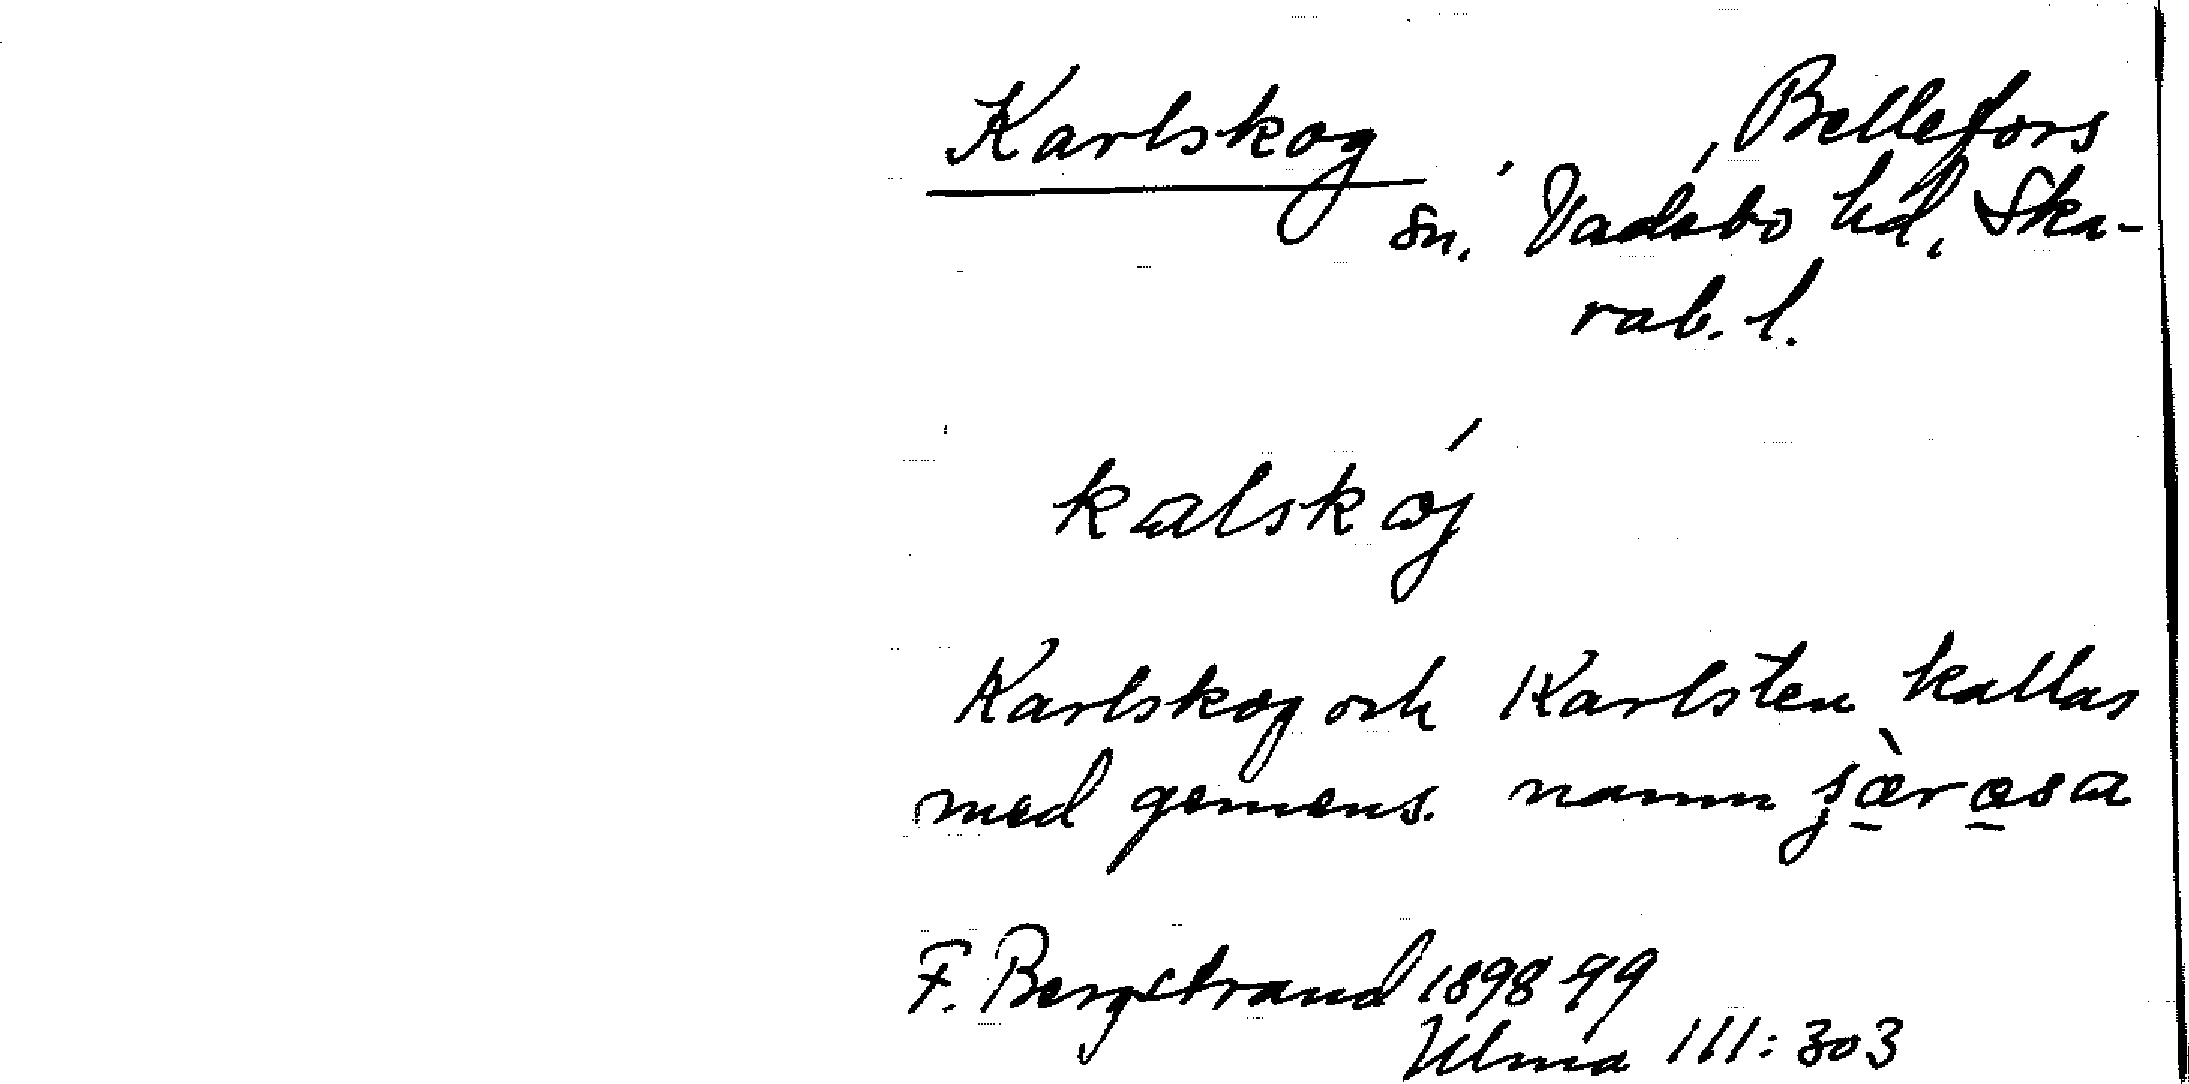 Karlskog, Bellefors
sn. Vadsbo hd, Ska-
rab. l.
kalskǿj
Karlskog och Karlsten kallas
med gemens. namn
F. Bergstrand 1898-99
Ulma 111:303